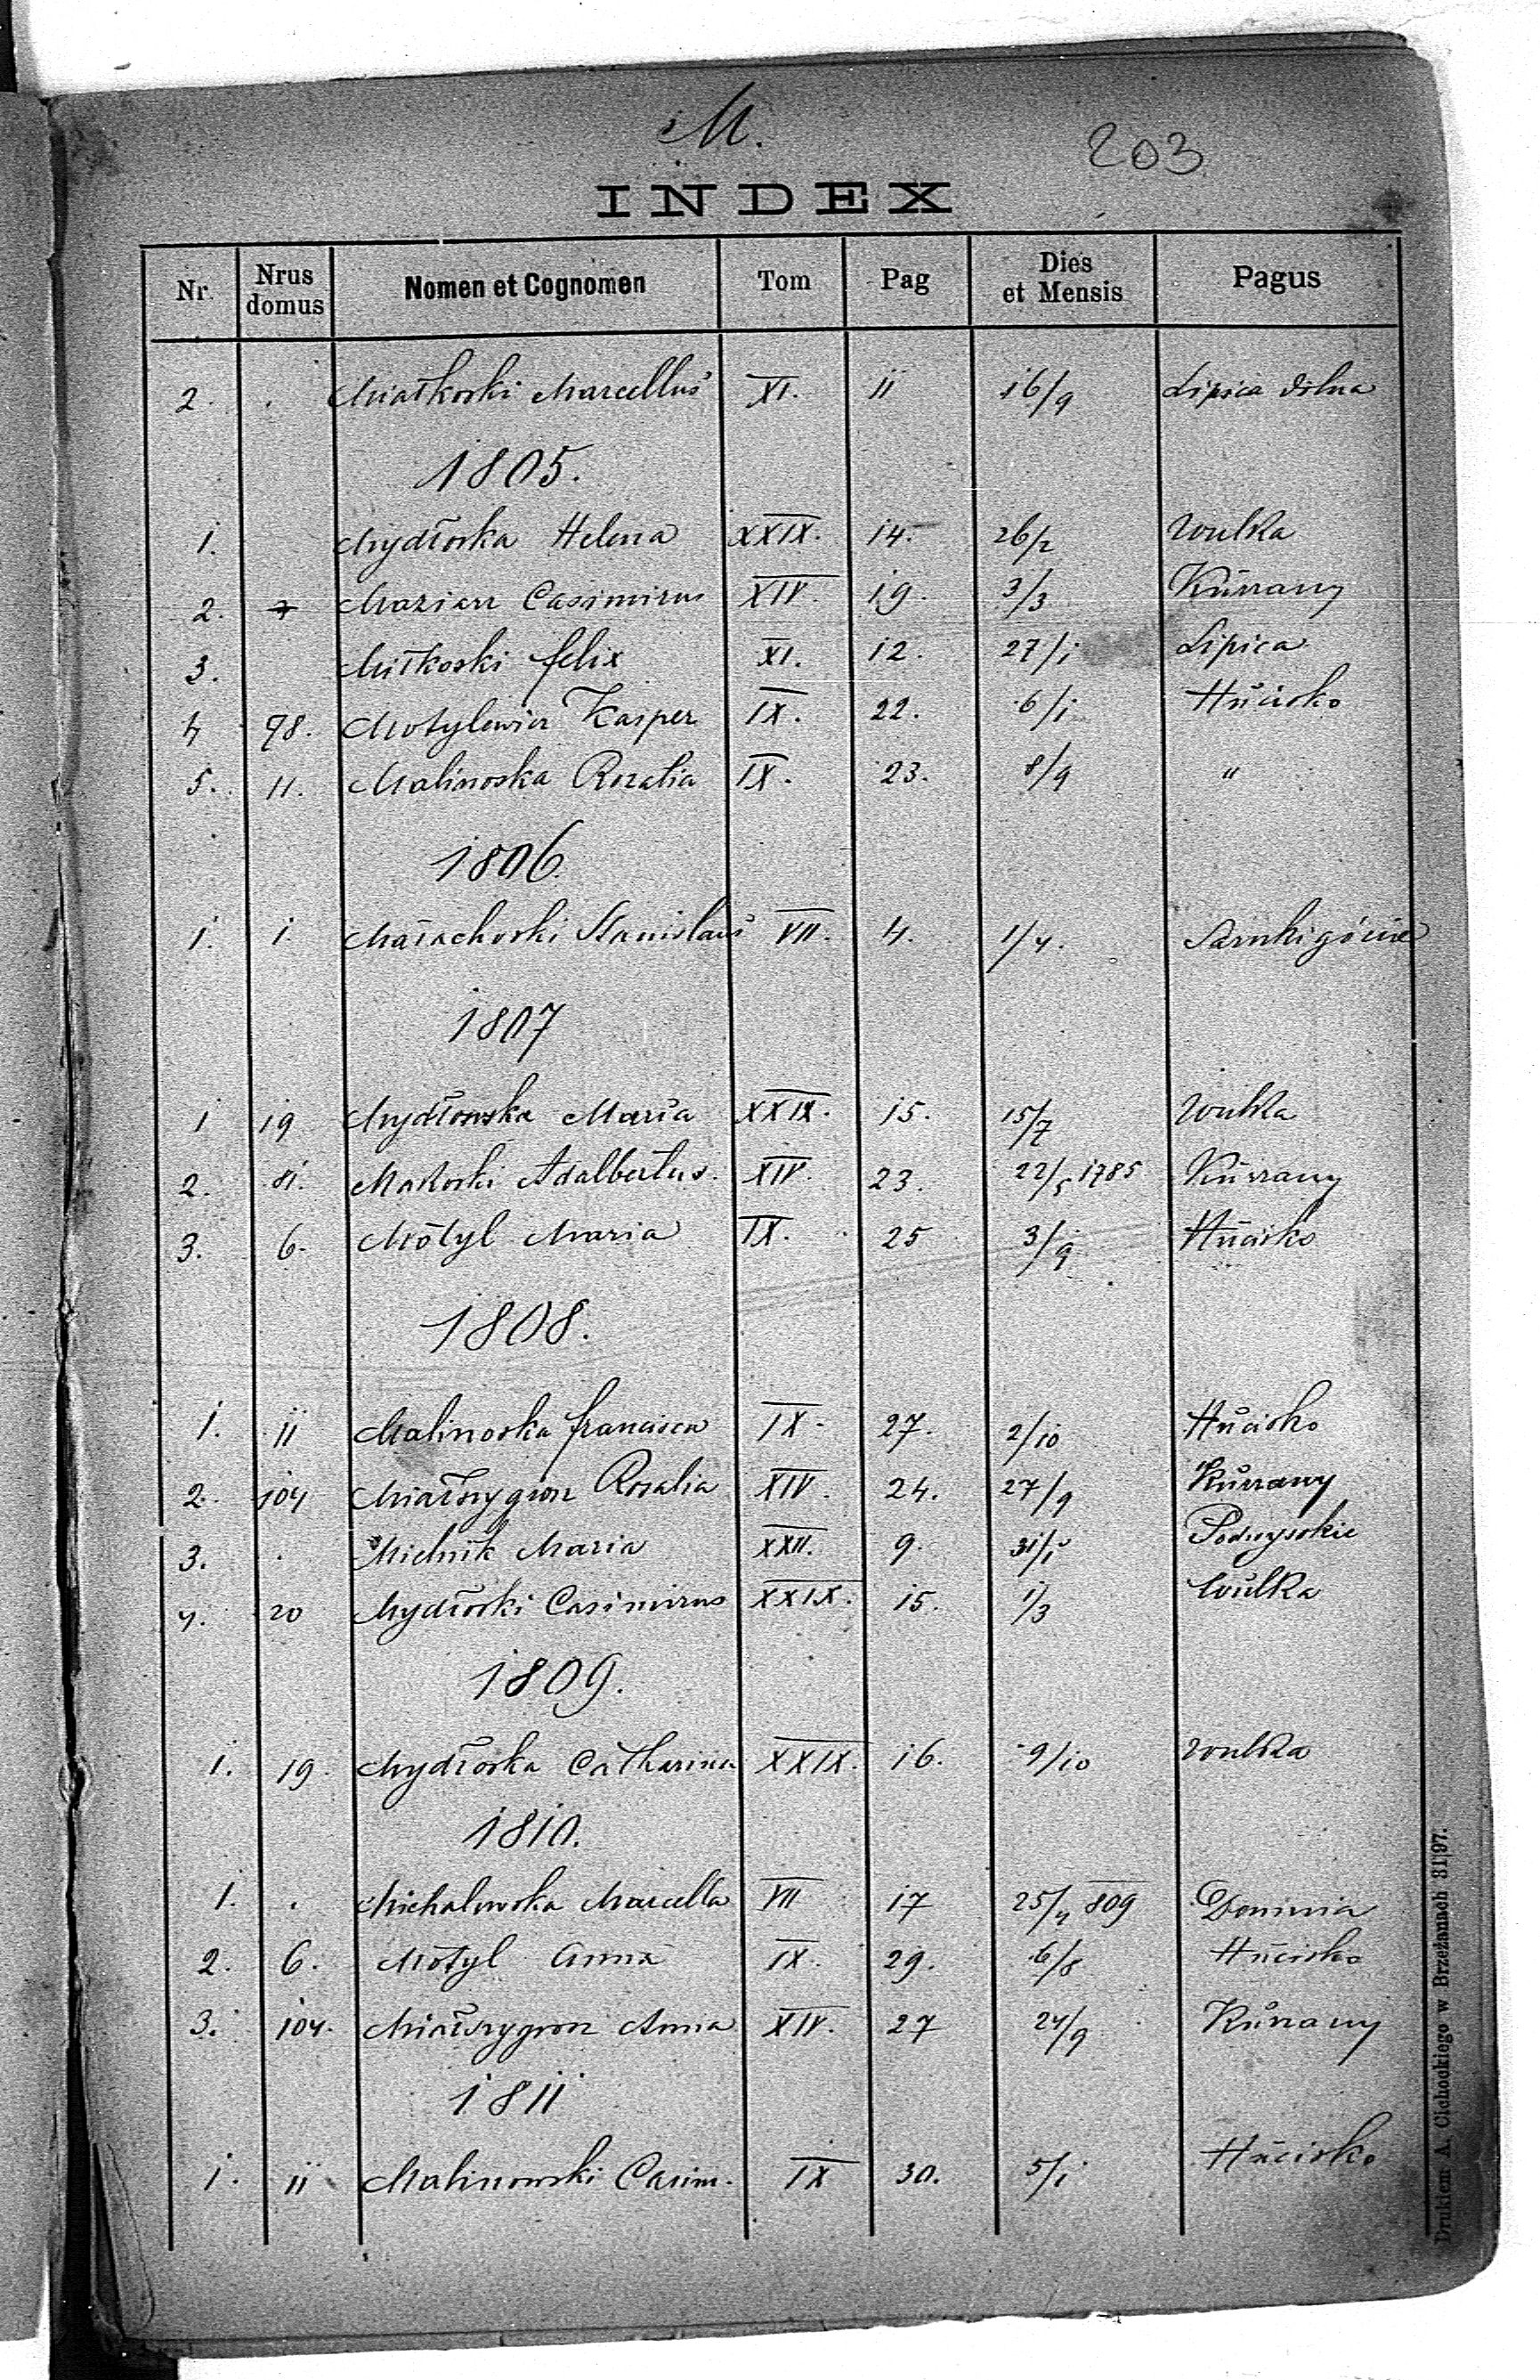 M.
203
INDEX
Nr. Nrus domus Nomen et Cognomen Tom Pag Dies et Mensis Pagus
2. . Miałkoski Marcellus XI. 11 16/9 Lipica dolna
1805.
1. Mydłoska Helena XXIX. 14. 26/2 Wulka
2. Casimirus XIV. 19. 3/3 Kúrzany
3. Mitkoski felix XI. 12. 27/1 Lipica
4 98. Motylewicz Kasper IX. 22. 6/1 Húcisko
5. 11. Malinoska Rozalia IX. 23. 8/9 "
1806.
1. 1. Małachoski Stanislaus VII. 4. 1/4. Sarnki górne
1807
1 19 Mydłowska Maria XXIX. 15. 15/7 Wulka
2. 81. Makoski Adalbertus. XIV. 23. 22/5 1785 Kúrzany
3. 6. Motyl Maria IX. 25 3/9 Húcisko
1808.
1. 11 Malinoska francisca IX. 27. 2/10 Húcisko
2. 104 Rozalia XIV. 24. 27/9 Kúrzany
3. . Mielnik Maria XXII. 9. 31/1 Podwysokie
4. 20 Mydłoski Casimirus XXIX. 15. 1/3 Wulka
1809.
1. 19. Mydłoska Catharina XXIX. 16. 9/10 Wulka
1810.
1. . Michalewska Marcella VII 17 25/4 809 Dominia
2. 6. Motyl Anna IX. 29. 6/8 Húcisko
3. 104. Anna XIV. 27 24/9 Kúrzany
1811
1. 11 Malinowski Casim. IX 30. 5/1 Húcisko
Drukiem A. Cichockiego w Brzeżanach 31|97.